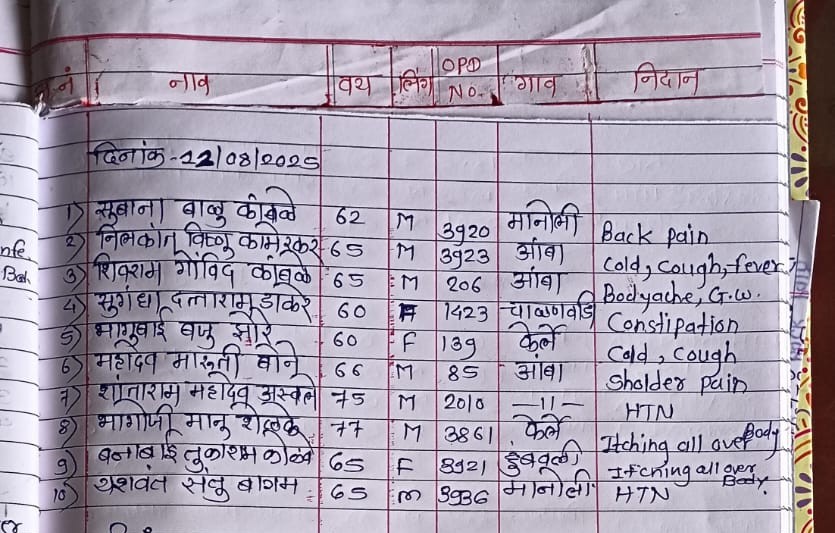 अ.नं नाव वय लिंग OPD No. गाव निदान
दिनांक - 12/08/2025
1) सुबाना बाळु कांबळे 62 M 3920 मानोली Back pain
2) निलकांत विष्णु कामेरकर 65 M 3923 आंबा Cold, cough, fever
3) शिवराम गोविंद कांबळे 65 M 206 आंबा Bodyache, G.W.
4) सुगंधा दत्ताराम डाकरे 60 F 1423 चाळणवाडि Constipation
5) भागुबाई बजु झोरे 60 F 139 केर्ले Cold, cough
6) महादेव मारुती बाने 66 M 85 आंबा Sholder pain
7) शांताराम महादेव अस्वले 75 M 2010 —11— HTN
8) भागोजी मानु शेळके 77 M 3861 केर्ले Itching all over Body
9) बनाबाई तुकाराम कोळपे 65 F 3921 हुंबवली Itching all over Body.
10) यशवंत संतु बागम 65 M 3936 मानोली HTN
nfe.